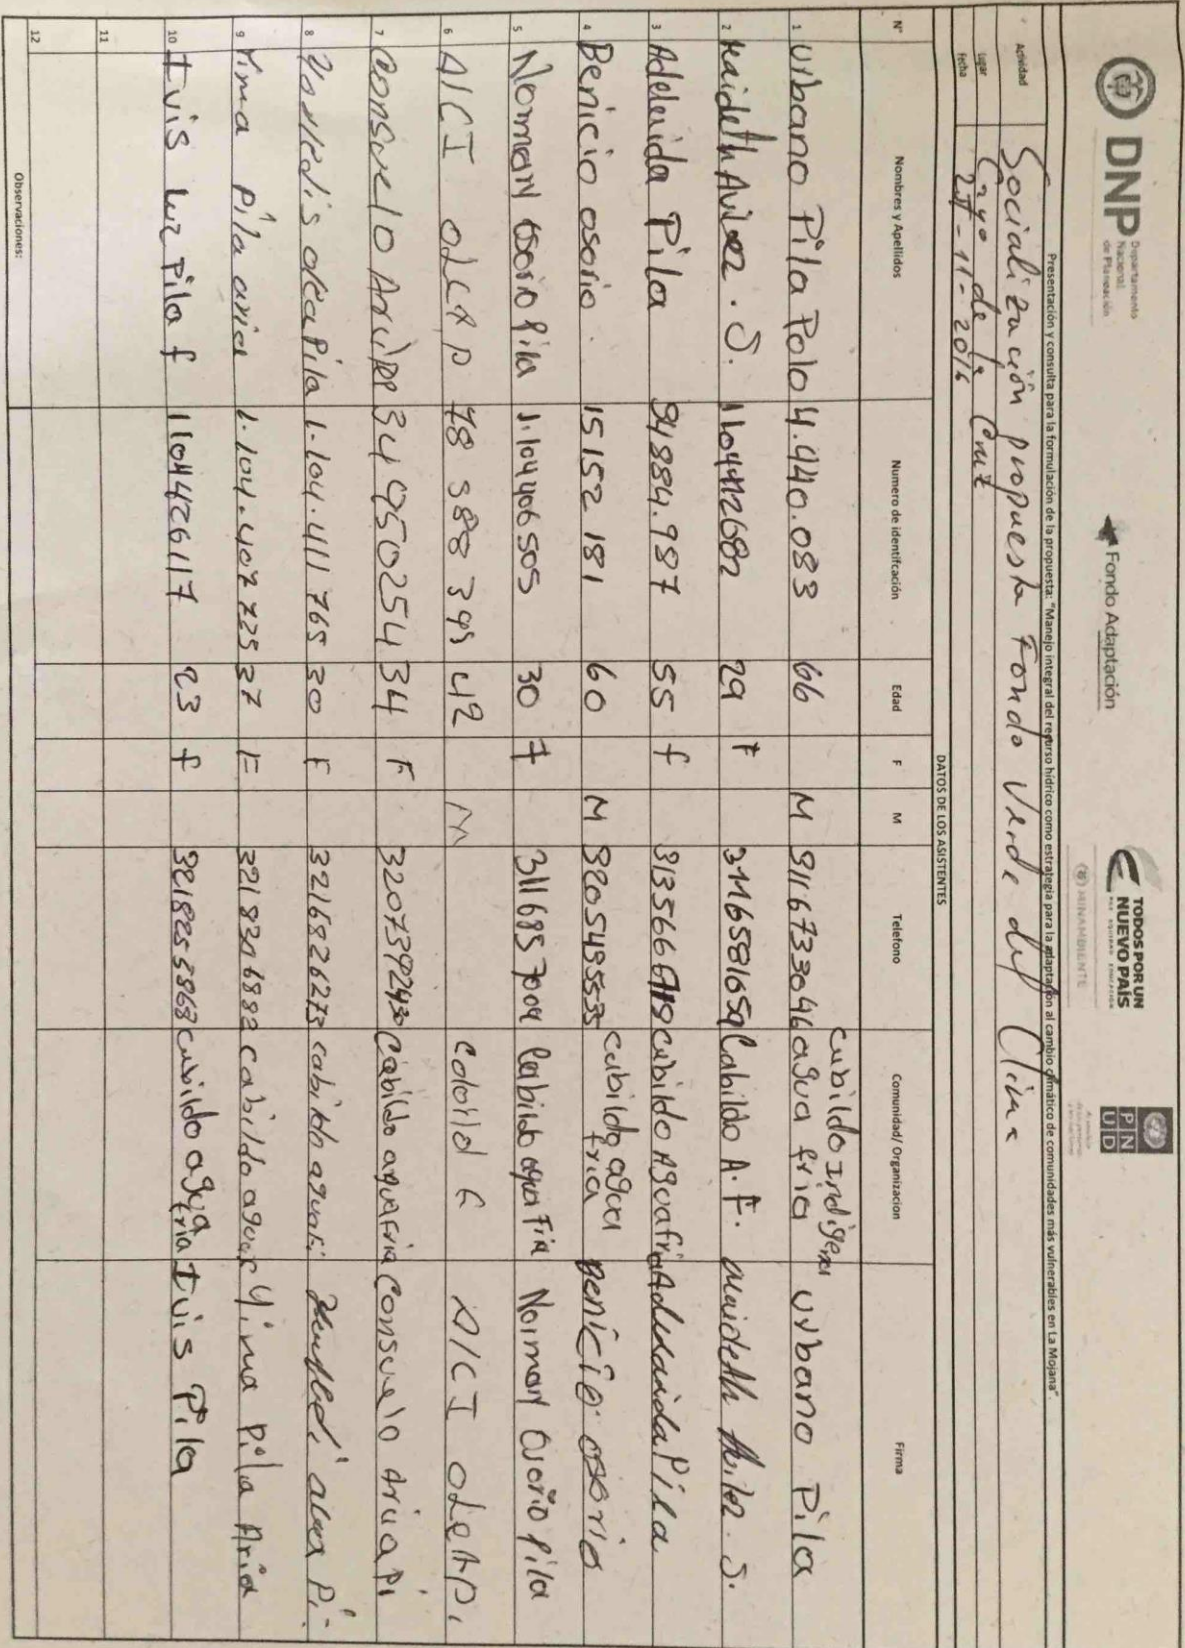 DNP Departamento
Nacional
de Planeación
Fondo Adaptación
TODOS POR UN
NUEVO PAÍS
PAZ EQUIDAD EDUCACIÓN
MINAMBIENTE
PNUD
Presentación y consulta para la formulación de la propuesta: "Manejo integral del recurso hídrico como estrategia para la adaptación al cambio climático de comunidades más vulnerables en La Mojana".
Actividad Socialización propuesta Fondo Verde del Clima
Lugar Cayo de la Cruz
Fecha -11-2016
DATOS DE LOS ASISTENTES
N° Nombres y Apellidos Numero de identifcación Edad F M Telefono Comunidad/Organizacion Firma
1 Urbano Pila Polo 4.440.083 66 M 3116733046 cabildo Indigena agua fria Urbano Pila
2 Maideth Avilez. S. 29 F 3116581659 Cabildo A.F. maideth Avilez. S.
3 Adeluida Pila 34884.987 55 f cabildo Aguafria Adeluida Pila
4 Benicio osorio. 15152181 60 M cabildo agua fria Benicio osorio
5 Normary Osorio Pila 1.104406505 30 f 3116857009 Cabildo agua Fria Normary Osorio Pila
6 42 M
7 Consuelo 34950254 34 F 3207392430 Cabildo aguafria Consuelo
8 Pila 1.104.411765 30 F 3216826273 cabildo
9 Yima Pila aria 1.104.407725 37 F cabildo agua f Yima Pila Aria
10 Ivis luz Pila f 1104426117 23 f cabildo agua fria Ivis Pila
11
12
Observaciones: